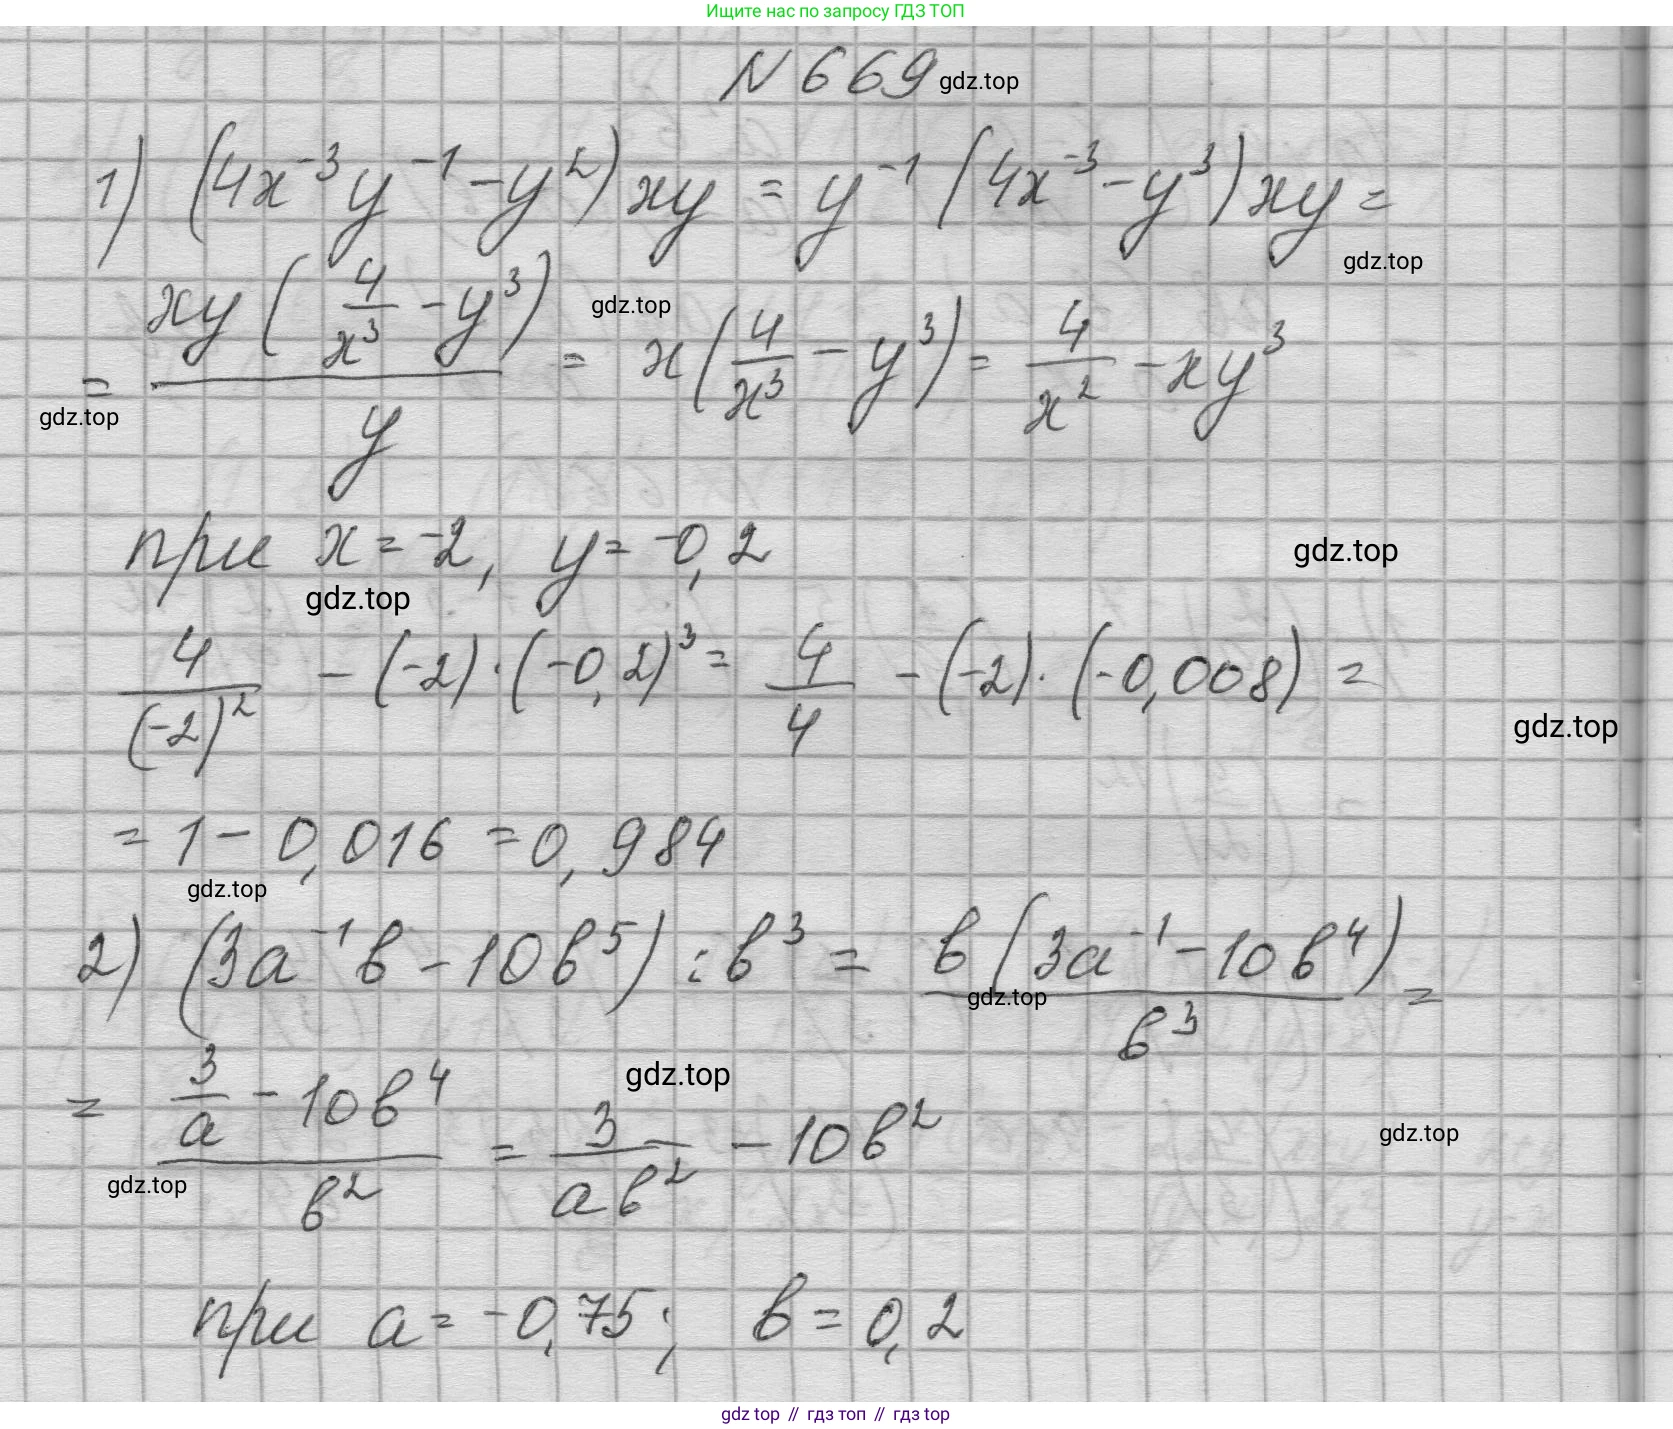 Ищите нас по запросу ГДЗ ТОП
N 669 gdz.top
1) (4x⁻³y⁻¹ − y²) xy = y⁻¹ (4x⁻³ − y³) xy =
gdz.top
= xy (4/x³ − y³) / y = x (4/x³ − y³) = 4/x² − xy³
gdz.top
gdz.top
при x = -2, y = -0,2
gdz.top
gdz.top
4/(-2)² − (-2) · (-0,2)³ = 4/4 − (-2) · (-0,008) =
gdz.top
= 1 − 0,016 = 0,984
gdz.top
2) (3a⁻¹b − 10b⁵) : b³ = b (3a⁻¹ − 10b⁴) / b³ =
gdz.top
= (3/a − 10b⁴) / b² = 3/(ab²) − 10b²
gdz.top
gdz.top
gdz.top
при a = -0,75; b = 0,2
gdz top // гдз топ // гдз top